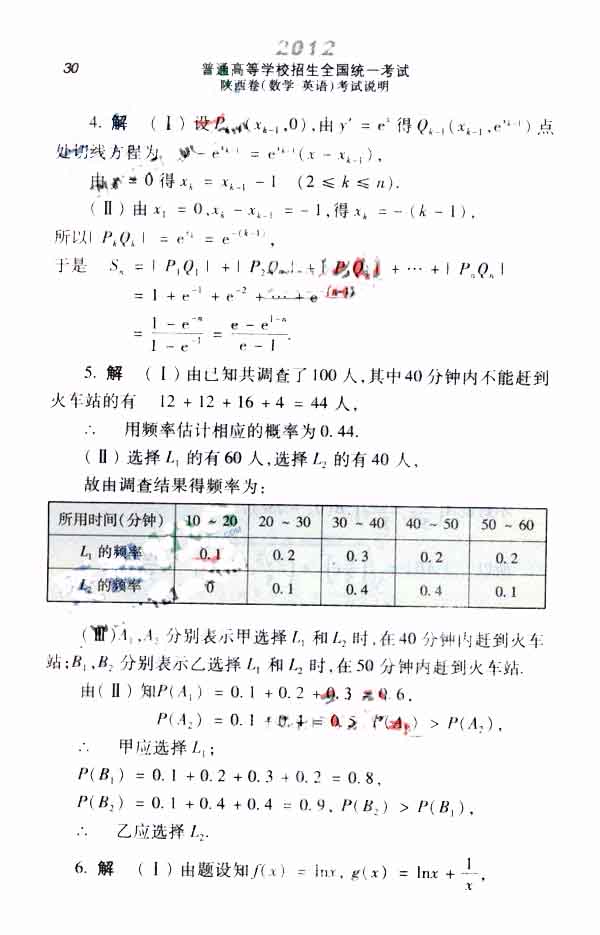 2012
30
普通高等学校招生全国统一考试
陕西卷(数学 英语)考试说明
4. 解 (Ⅰ)设 Pₖ₋₁(xₖ₋₁,0),由 y′ = eˣ 得 Qₖ₋₁(xₖ₋₁,e^(xₖ₋₁))点
处切线方程为 y − e^(xₖ₋₁) = e^(xₖ₋₁)(x − xₖ₋₁),
由 y = 0 得 xₖ = xₖ₋₁ − 1 (2 ≤ k ≤ n).
(Ⅱ)由 x₁ = 0,xₖ − xₖ₋₁ = − 1,得 xₖ = − (k − 1),
所以| PₖQₖ | = e^(xₖ) = e^(−(k−1)),
于是 Sₙ = | P₁Q₁ | + | P₂Q₂ | + | P₃Q₃ | + ⋯ + | PₙQₙ |
= 1 + e⁻¹ + e⁻² + ⋯ + e^(−(n−1))
= (1 − e⁻ⁿ)/(1 − e⁻¹) = (e − e¹⁻ⁿ)/(e − 1).
5. 解 (Ⅰ)由已知共调查了 100 人,其中 40 分钟内不能赶到
火车站的有 12 + 12 + 16 + 4 = 44 人,
∴ 用频率估计相应的概率为 0. 44.
(Ⅱ)选择 L₁ 的有 60 人,选择 L₂ 的有 40 人,
故由调查结果得频率为:
所用时间(分钟) 10 ~ 20 20 ~ 30 30 ~ 40 40 ~ 50 50 ~ 60
L₁ 的频率 0. 1 0. 2 0. 3 0. 2 0. 2
L₂ 的频率 0 0. 1 0. 4 0. 4 0. 1
(Ⅲ)A₁,A₂ 分别表示甲选择 L₁ 和 L₂ 时,在 40 分钟内赶到火车
站;B₁,B₂ 分别表示乙选择 L₁ 和 L₂ 时,在 50 分钟内赶到火车站.
由(Ⅱ)知P(A₁) = 0. 1 + 0. 2 + 0. 3 = 0. 6,
P(A₂) = 0. 1 + 0. 4 = 0. 5, P(A₁) > P(A₂),
∴ 甲应选择 L₁;
P(B₁) = 0. 1 + 0. 2 + 0. 3 + 0. 2 = 0. 8,
P(B₂) = 0. 1 + 0. 4 + 0. 4 = 0. 9, P(B₂) > P(B₁),
∴ 乙应选择 L₂.
6. 解 (Ⅰ)由题设知f(x) = lnx, g(x) = lnx + 1/x,